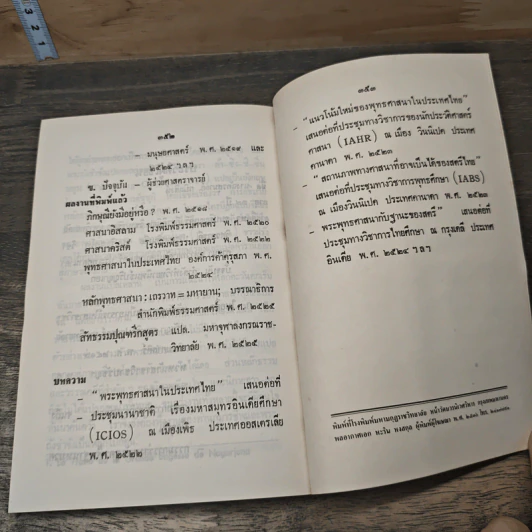 ๓๕๒
– มนุษยศาสตร์ พ.ศ. ๒๕๑๙ และ
๒๕๒๔ ฯลฯ
ฃ. ปัจจุบัน – ผู้ช่วยศาสตราจารย์
ผลงานที่พิมพ์แล้ว
ภิกษุณียังมีอยู่หรือ? พ.ศ. ๒๕๑๘
ศาสนาอิสลาม โรงพิมพ์ธรรมศาสตร์ พ.ศ. ๒๕๒๐
ศาสนาคริสต์ โรงพิมพ์ธรรมศาสตร์ พ.ศ. ๒๕๒๒
พุทธศาสนาในประเทศไทย องค์การค้าคุรุสภา พ.ศ.
๒๕๒๔
หลักพุทธศาสนา : เถรวาท = มหายาน; บรรณาธิการ
สำนักพิมพ์ธรรมศาสตร์ พ.ศ. ๒๕๒๕
สัทธรรมปุณฑรีกสูตร แปล. มหาจุฬาลงกรณราช-
วิทยาลัย พ.ศ. ๒๕๒๕
บทความ
“พระพุทธศาสนาในประเทศไทย” เสนอต่อที่
– ประชุมนานาชาติ เรื่องมหาสมุทรอินเดียศึกษา
(ICIOS) ณ เมืองเพิธ ประเทศออสเตรเลีย
พ.ศ. ๒๕๒๒
๓๕๓
– “แนวโน้มใหม่ของพุทธศาสนาในประเทศไทย”
เสนอต่อที่ประชุมทางวิชาการของนักประวัติศาสตร์
ศาสนา (IAHR) ณ เมือง วินนิเปค ประเทศ
คานาดา พ.ศ. ๒๕๒๓
– “สถานภาพทางศาสนาที่อาจเป็นได้ของสตรีไทย”
เสนอต่อที่ประชุมทางวิชาการพุทธศึกษา (IABS)
ณ เมืองวินนิเปค ประเทศคานาดา พ.ศ. ๒๕๒๓
– พระพุทธศาสนากับฐานะของสตรี” เสนอต่อที่
ประชุมทางวิชาการไทยศึกษา ณ กรุงเดลี ประเทศ
อินเดีย พ.ศ. ๒๕๒๔ ฯลฯ
พิมพ์ที่โรงพิมพ์มหามกุฏราชวิทยาลัย หน้าวัดบวรนิเวศวิหาร กรุงเทพมหานคร
1
2
3